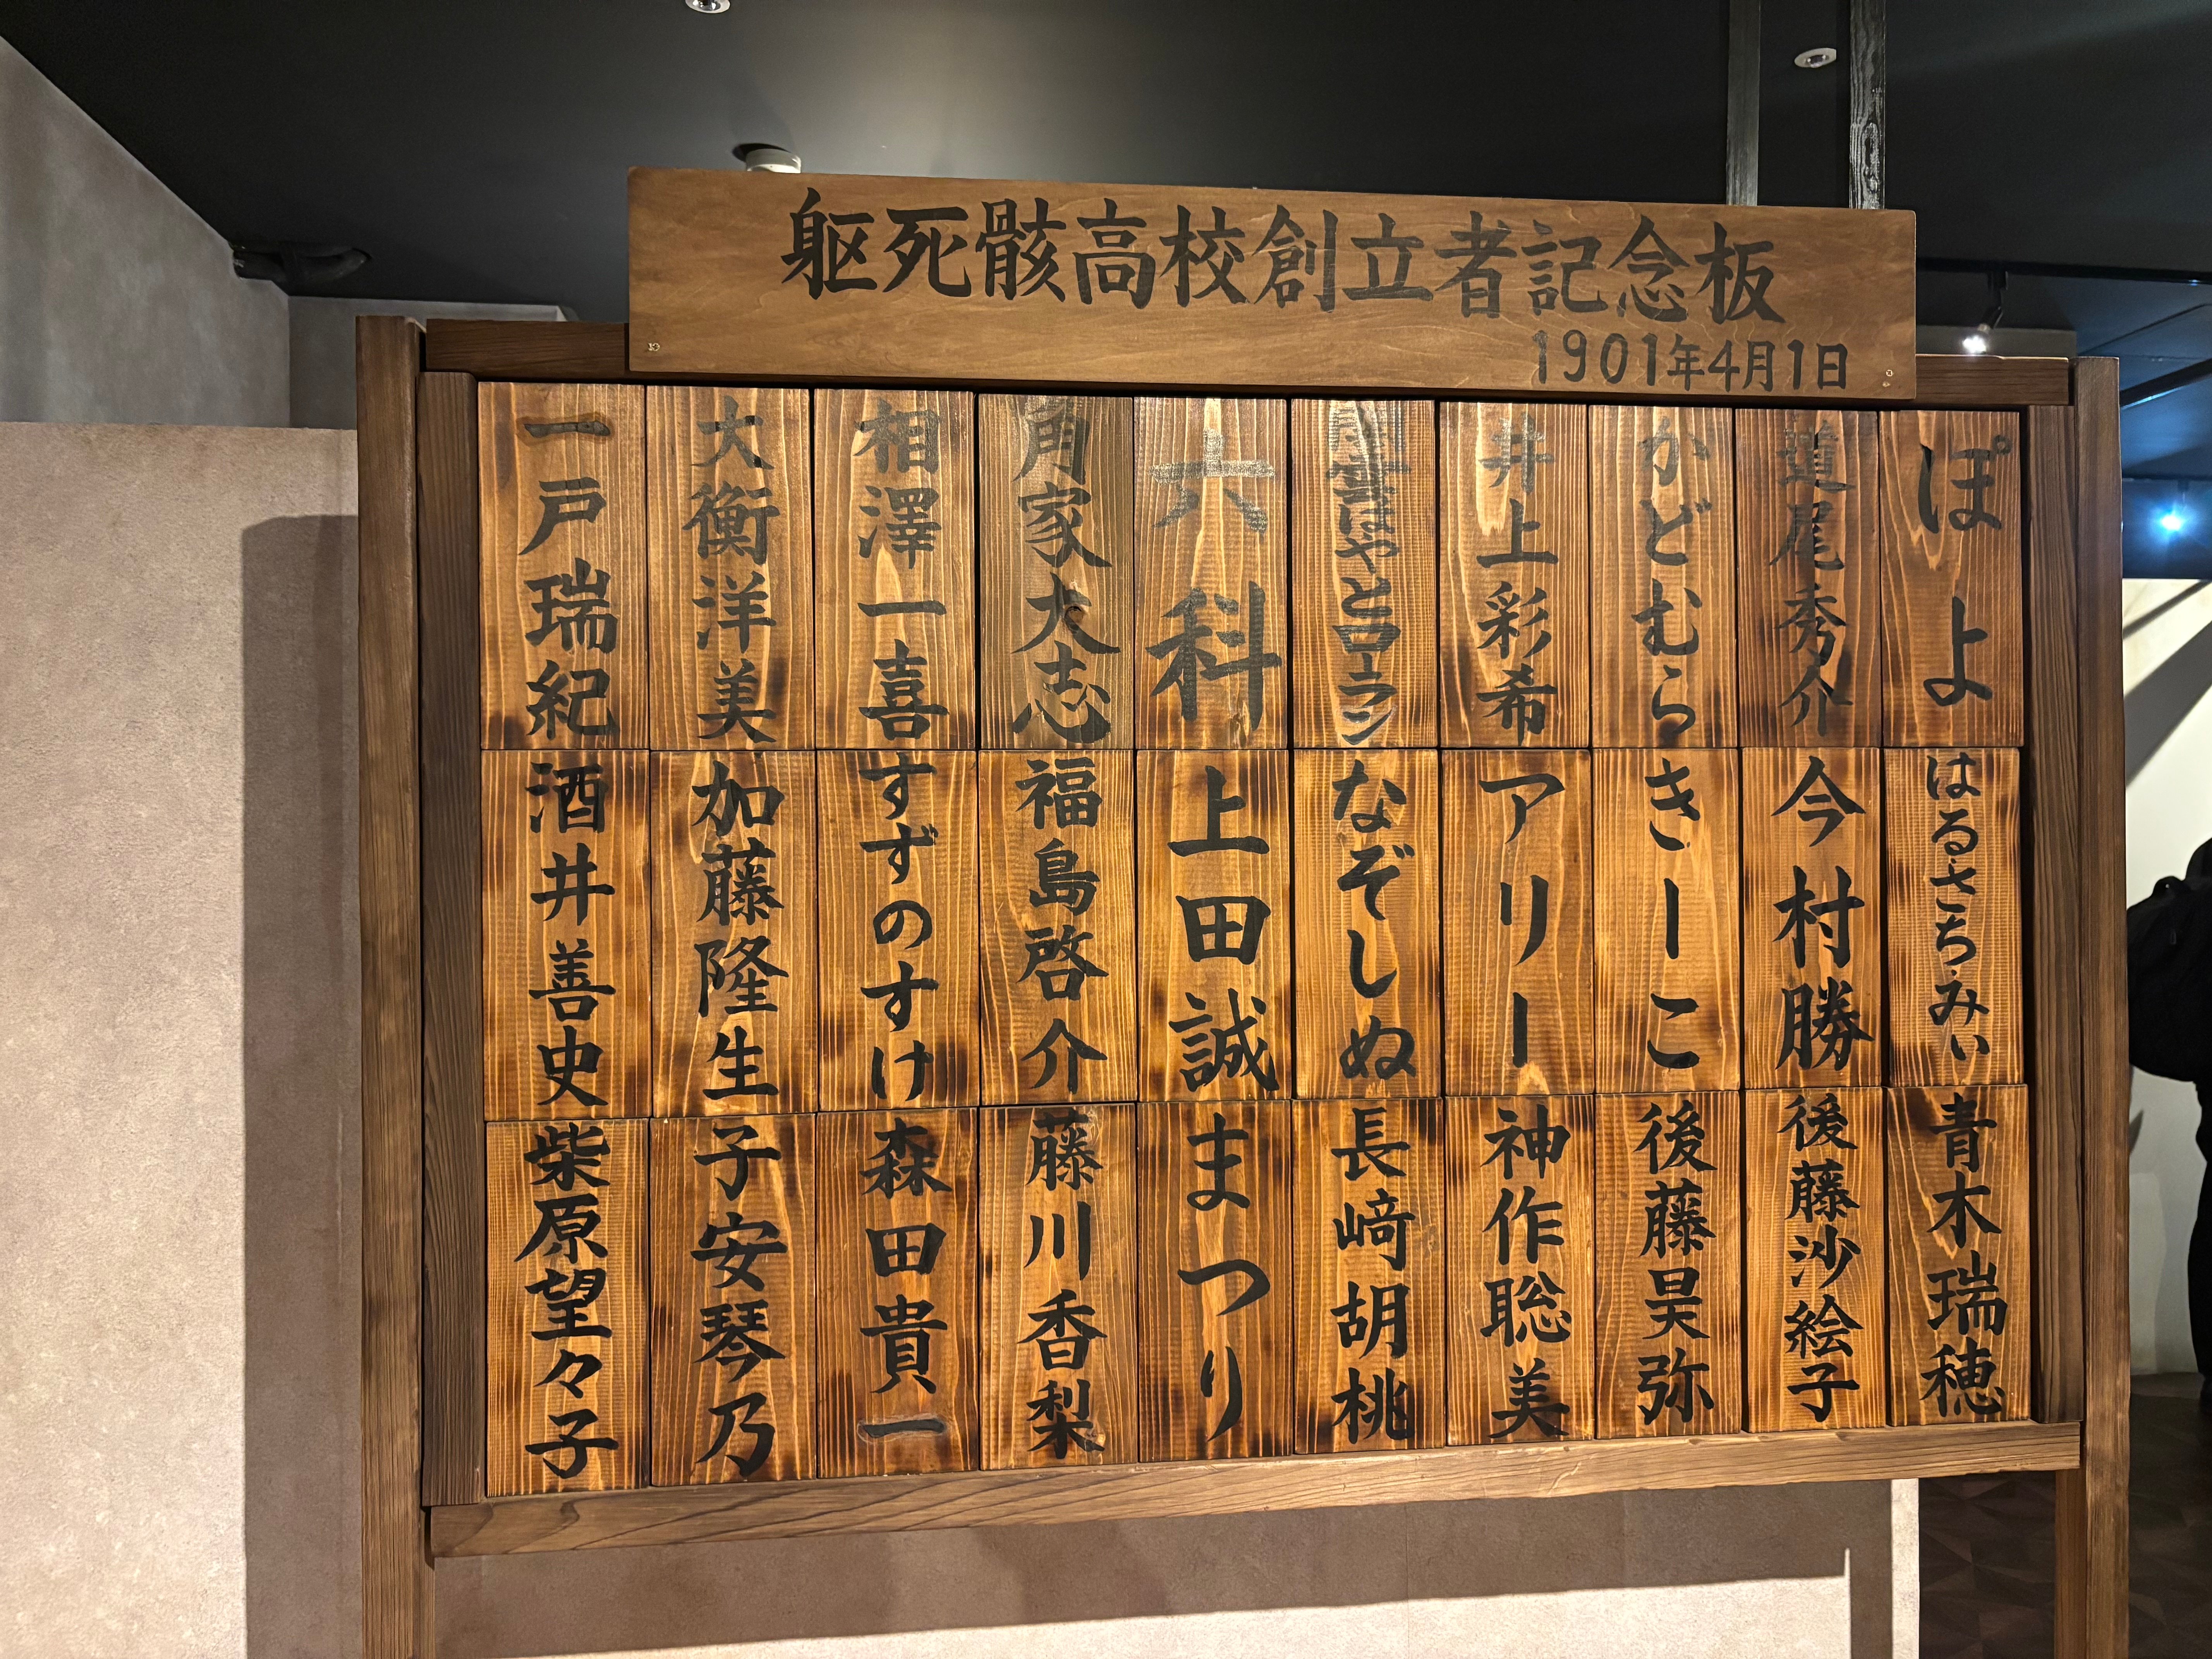 躯死骸高校創立者記念板
1901年4月1日
ぽよ
道尾秀介
かどむら
井上彩希
はやとロラン
六科
角家大志
相澤一喜
大衡洋美
一戸瑞紀
はるさちみぃ
今村勝
きーこ
アリー
なぞしぬ
上田誠
福島啓介
すずのすけ
加藤隆生
酒井善史
青木瑞穂
後藤沙絵子
後藤昊弥
神作聡美
長﨑胡桃
まつり
藤川香梨
森田貴一
子安琴乃
柴原望々子